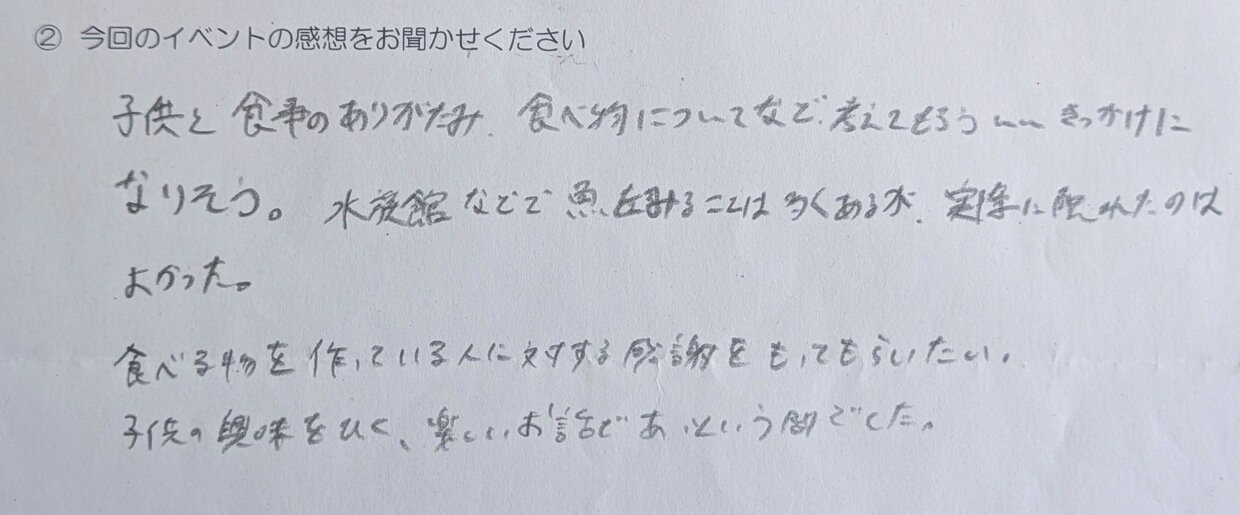 ② 今回のイベントの感想をお聞かせください
子供と食事のありがたみ、食べ物についてなど、考えてもらういいきっかけに
なりそう。水族館などで魚をみることは多くあるが、実際に触れたのは
よかった。
食べる物を作っている人に対する感謝をもってもらいたい。
子供の興味をひく、楽しいお話であっという間でした。